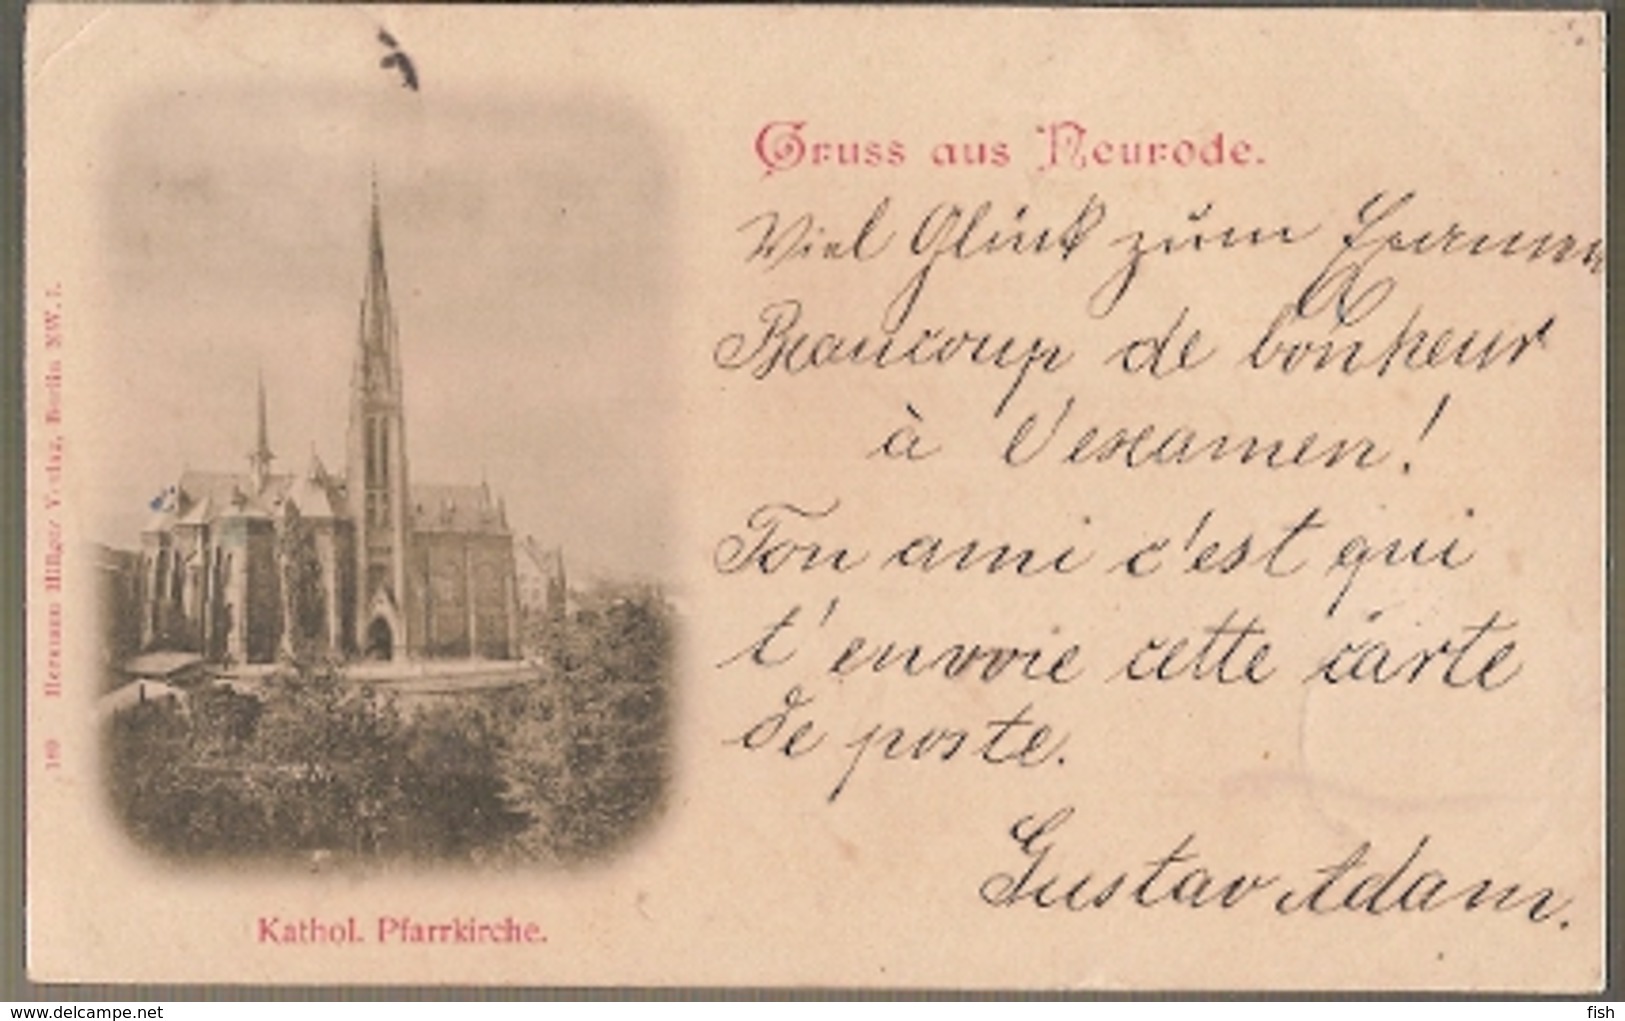 Gruss aus Neurode.
Viel Glück zum Examen
Beaucoup de bonheur
à l'examen!
Ton ami c'est qui
t'envoie cette carte
de poste.
Gustav Adam.
Kathol. Pfarrkirche.
169 Hermann Hillger Verlag, Berlin NW. 7.
www.delcampe.net
fish